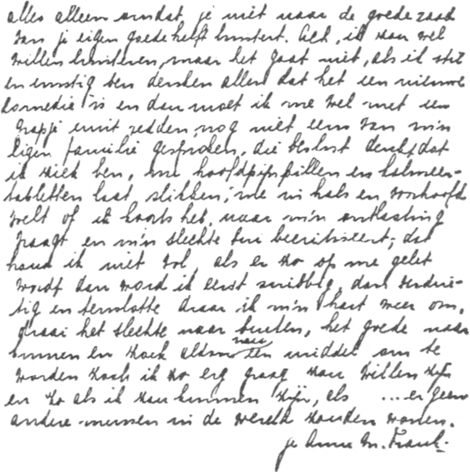 alles alleen omdat je niet naar de goede raad
van je eigen goede helft luistert. Ach, ik zou wel
willen luisteren, maar het gaat niet, als ik stil
en ernstig ben denken allen dat het een nieuwe
comedie is en dan moet ik me wel met een
grapje eruit redden, nog niet eens van m'n
eigen familie gesproken, die beslist denkt, dat
ik ziek ben, me hoofdpijnpillen en kalmeer-
tabletten laat slikken, me in hals en voorhoofd
voelt of ik koorts heb, naar m'n ontlasting
vraagt en m'n slechte bui becritiseert, dat
houd ik niet vol, als er zo op me gelet
wordt dan word ik eerst snibbig, dan verdrie-
tig en tenslotte draai ik m'n hart weer om,
draai het slechte naar buiten, het goede naar
binnen en zoek aldoor naar een middel om te
worden zoals ik zo erg graag zou willen zijn
en zo als ik zou kunnen zijn, als ... er geen
andere mensen in de wereld zouden wonen.
je Anne M. Frank.